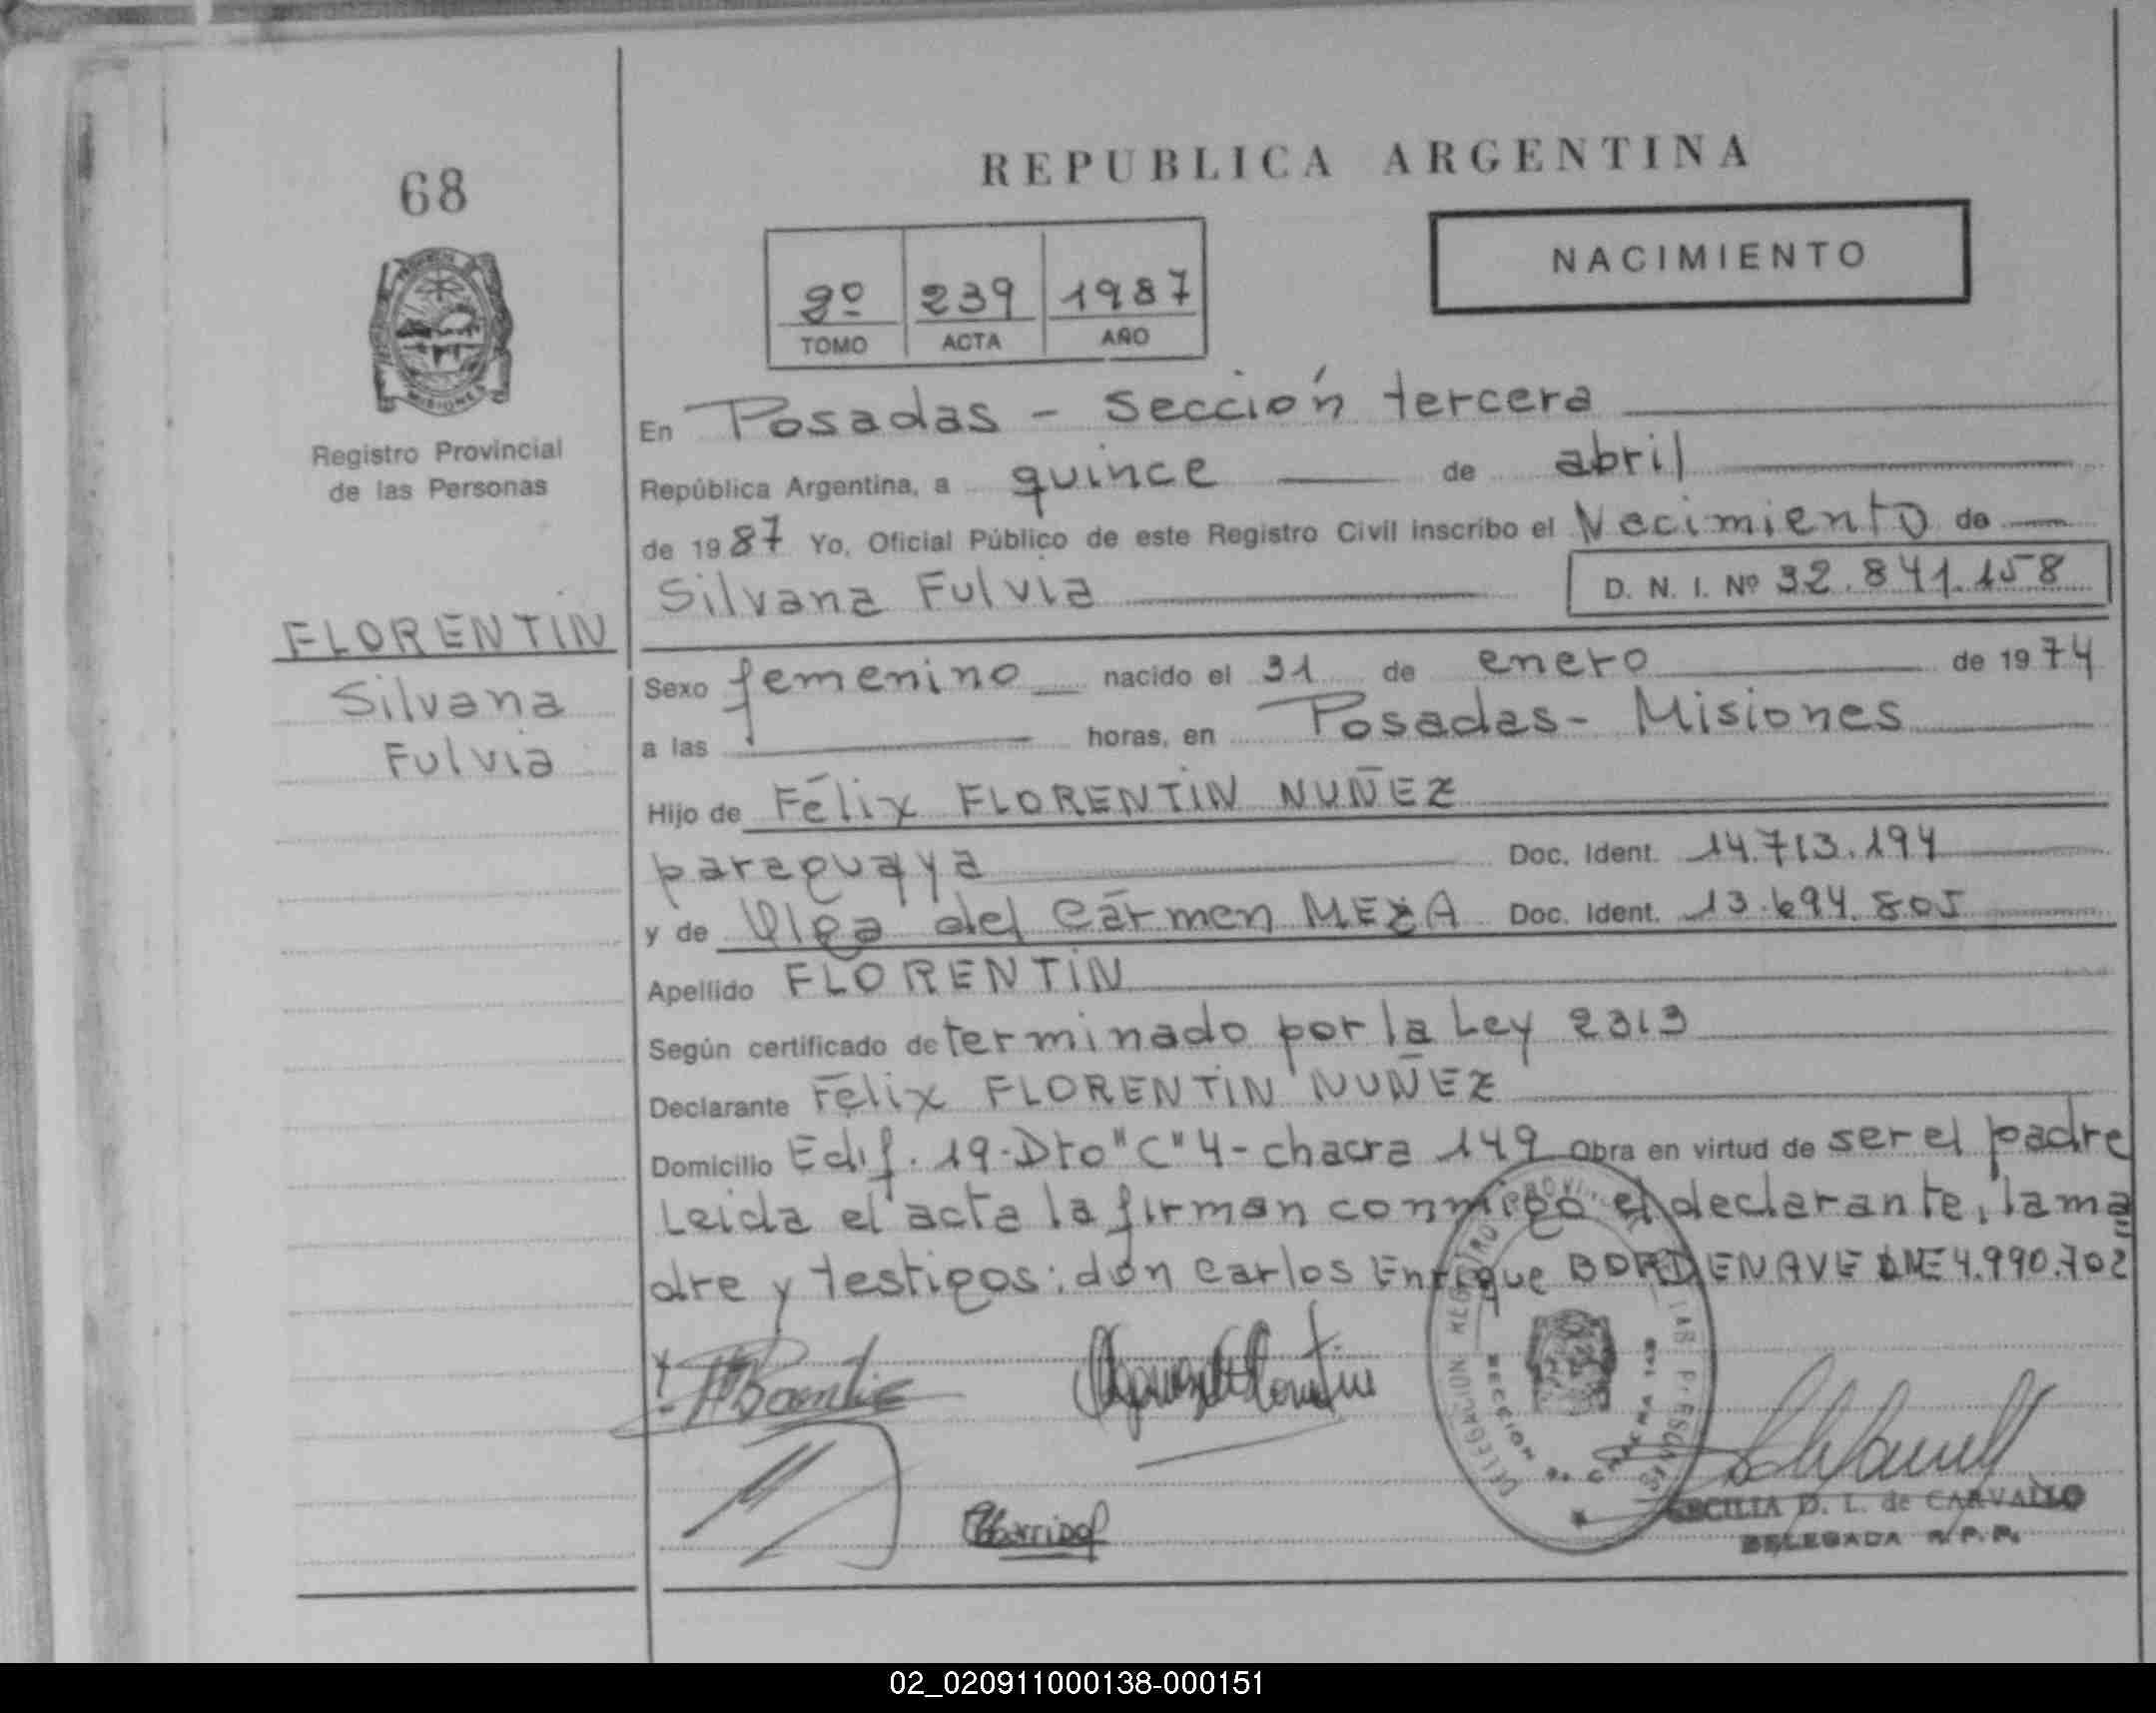 68
REPUBLICA ARGENTINA
NACIMIENTO
2º 239 1987
TOMO ACTA AÑO
MISIONES
Registro Provincial
de las Personas
En Posadas - Sección tercera
República Argentina, a quince de abril
de 1987 Yo, Oficial Público de este Registro Civil inscribo el Nacimiento de
Silvana Fulvia D. N. I. Nº 32.841.158
FLORENTIN
Silvana
Fulvia
Sexo femenino nacido el 31 de enero de 1974
a las horas, en Posadas - Misiones
Hijo de Félix FLORENTIN NUÑEZ
paraguaya Doc. Ident. 14.713.194
y de Olga del Cármen MEZA Doc. Ident. 13.694.805
Apellido FLORENTIN
Según certificado determinado por la Ley 2313
Declarante Félix FLORENTIN NUÑEZ
Domicilio Edif. 19-Dto "C" 4 - chacra 149 Obra en virtud de ser el padre
Leida el acta la firman conmigo el declarante, la ma
dre y testigos: don Carlos Enrique BORDENAVE DNI 4.990.702
y
DELEGACION REGISTRO PROVINCIAL LAS PERSONAS
SECCION 3a. CHACRA 149
CECILIA D. L. de CARVALLO
DELEGADA R. P. P.
02_020911000138-000151